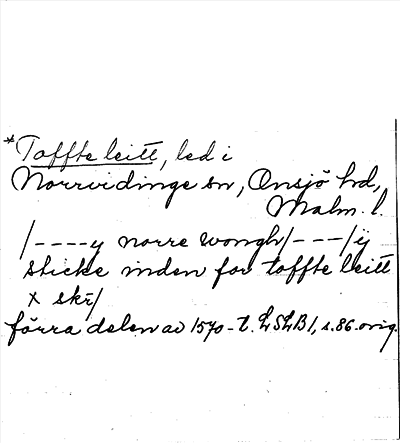 *Toffte leitt, led i
Norrvidinge sn, Onsjö hd,
Malm. l.
/----y norre wongh/---/ij
sticke inden for toffte leitt
x skr/
förra delen av 1570-t. LSLB 1, s. 86. orig.